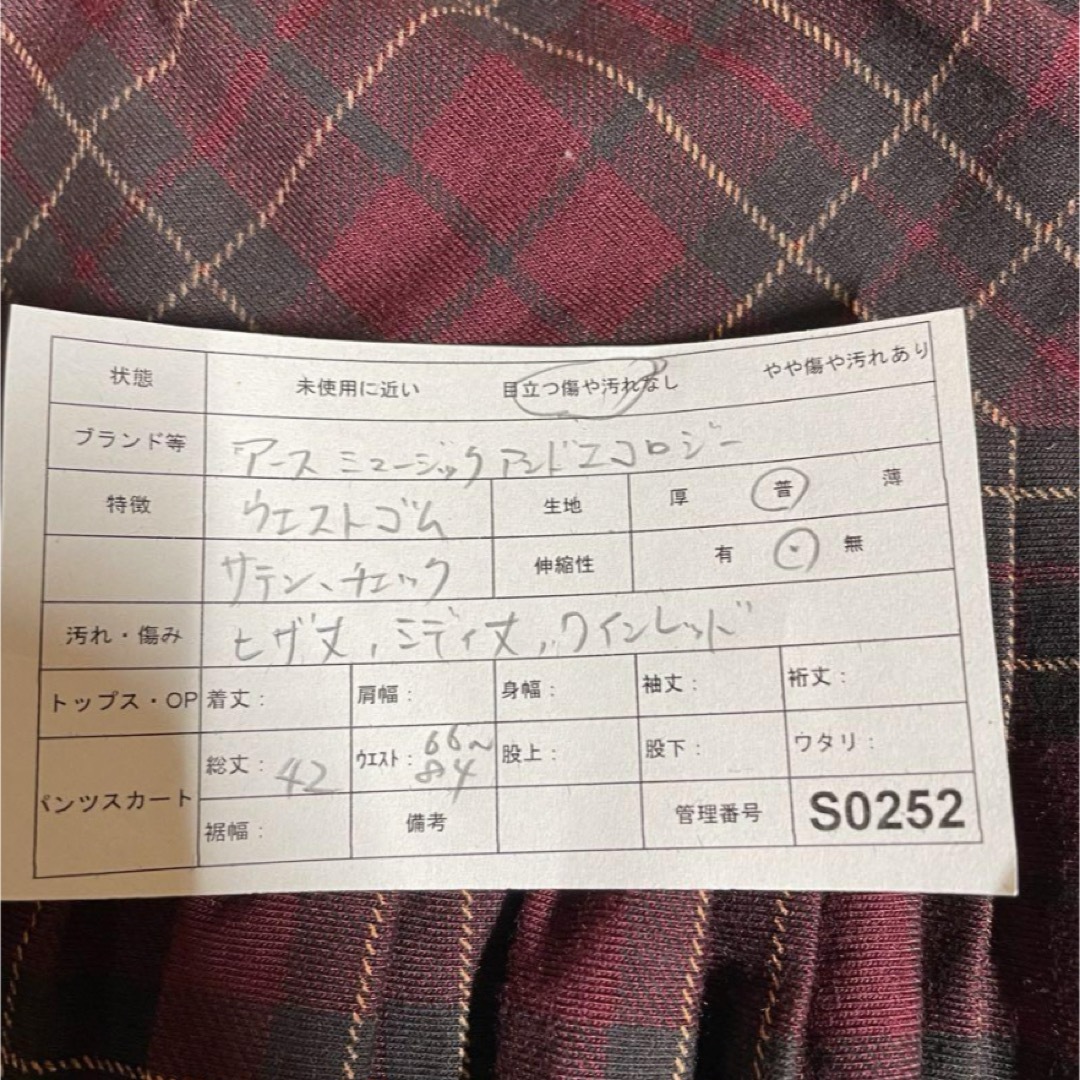 状態 未使用に近い 目立つ傷や汚れなし やや傷や汚れあり
ブランド等 アース ミュージック アンド エコロジー
特徴 ウエストゴム 生地 厚 普 薄
サテン、チェック 伸縮性 有 ・ 無
汚れ・傷み ヒザ丈, ミディ丈, ワインレッド
トップス・OP 着丈: 肩幅: 身幅: 袖丈: 裄丈:
パンツスカート 総丈: 42 ウエスト: 66〜84 股上: 股下: ワタリ:
裾幅: 備考 管理番号 S0252